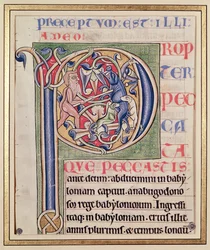 PRECEPTVM: EST: ILLI:
A DEO:
P ROP
TER
PEC
CA
TA
QVE PECCASTIS
ante deum: abducemini in baby
loniam captiui a nabugodono
sor rege babyloniorum. Ingressi
itaq; in babyloniam. eritis illic
annis plurimis. & temporibus longis